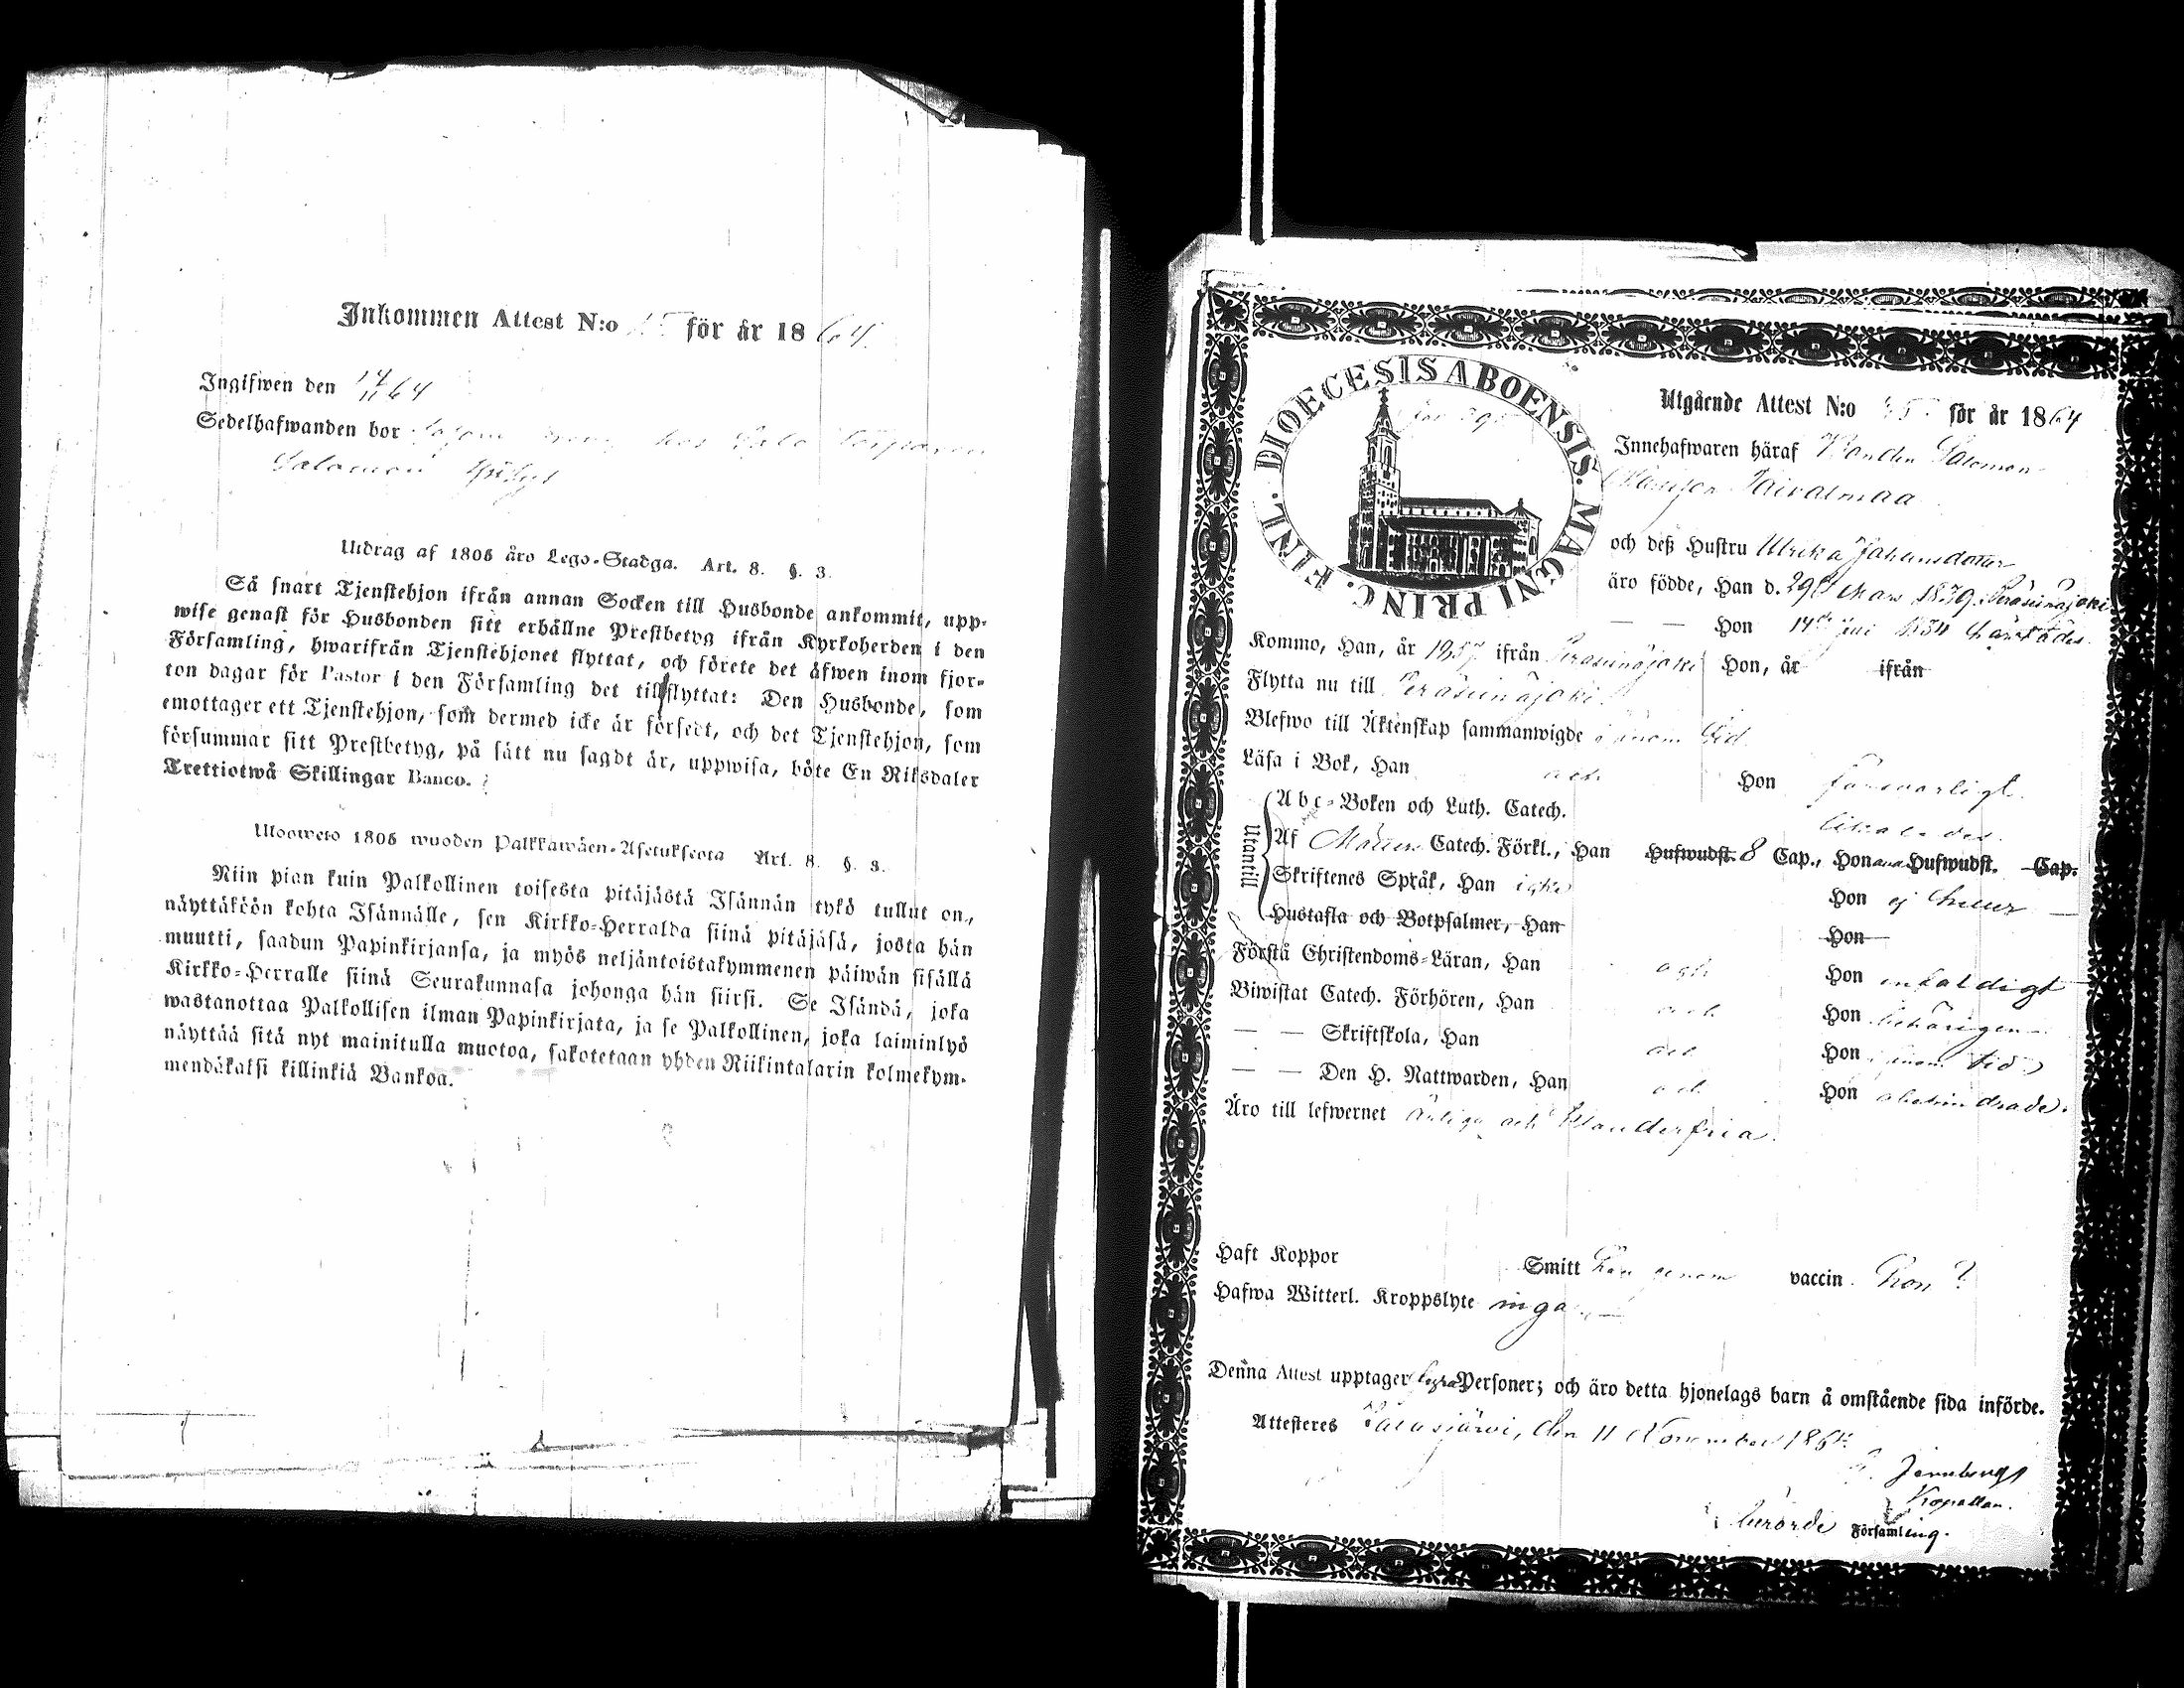 Inkommen Attest N:o för år 1864.
Ingifwen den 14/11 64
Sedelhafwanden bor hos
Salomon
Utdrag af 1805 års Lego-Stadga. Art. 8. §. 3.
Så snart Tjenstehjon ifrån annan Socken till Husbonde ankommit, upp-
wise genast för Husbonden sitt erhållne Prestbetyg ifrån Kyrkoherden i den
Församling, hwarifrån Tjenstehjonet flyttat, och förete det äfwen inom fjor-
ton dagar för Pastor i den Församling det tillflyttat: Den Husbonde, som
emottager ett Tjenstehjon, som dermed icke är försedt, och det Tjenstehjon, som
försummar sitt Prestbetyg, på sätt nu sagdt är, uppwisa, böte En Riksdaler
Trettiotwå Skillingar Banco.
Ulosweto 1805 wuoden Palkkawäen-Asetuksesta Art. 8. §. 3.
Niin pian kuin Palkollinen toisesta pitäjästä Isännän tykö tullut on,
näyttäköön kohta Isännälle, sen Kirkko-Herralda siinä pitäjäsä, josta hän
muutti, saadun Papinkirjansa, ja myös neljäntoistakymmenen päiwän sisällä
Kirkko-Herralle siinä Seurakunnasa johonga hän siirsi. Se Isändä, joka
wastanottaa Palkollisen ilman Papinkirjata, ja se Palkollinen, joka laiminlyö
näyttää sitä nyt mainitulla muotoa, sakotetaan yhden Riikintalarin kolmekym-
mendäkaksi killinkiä Bankoa.
DIOECESIS ABOENSIS. MAGNI PRINC. FINL.
Utgående Attest N:o för år 1864
Innehafwaren häraf Bonden Salomon
Taivalmaa
och deß Hustru Ulrika
äro födde, Han d. 29 Mars 1839 Peräseinäjoki
— — Hon 14 1834 härstädes.
Kommo, Han, år 1857 ifrån Peräseinäjoki Hon, år ifrån
Flytta nu till Peräseinäjoki.
Blefwo till Äktenskap sammanwigde i sinom tid
Läsa i Bok, Han och Hon försvarligt.
Utantill
Abc-Boken och Luth. Catech. likaledes.
Af Catech. Förkl., Han Hufwudst. 8 Cap., Hon Hufwudst. Cap.
Skriftenes Språk, Han Hon ej heller —
Hustafla och Botpsalmer, Han Hon
Förstå Christendoms-Läran, Han och Hon enfaldigt
Biwistat Catech. Förhören, Han och Hon behörigen
— — Skriftskola, Han och Hon i sinom tid
— — Den H. Nattwarden, Han och Hon obehindrade.
Äro till lefwernet ärliga och klanderfria.
Haft Koppor Smitt Han genom vaccin. Hon ?
Hafwa Witterl. Kroppslyte inga —
Denna Attest upptager Personer; och äro detta hjonelags barn å omstående sida införde.
Attesteres Jalasjärwi, den 11 November 1864.
Kapellan.
berörde Församling.